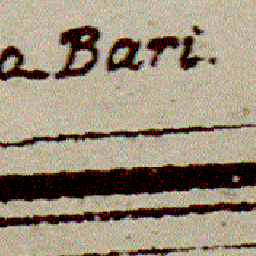 a Bari.